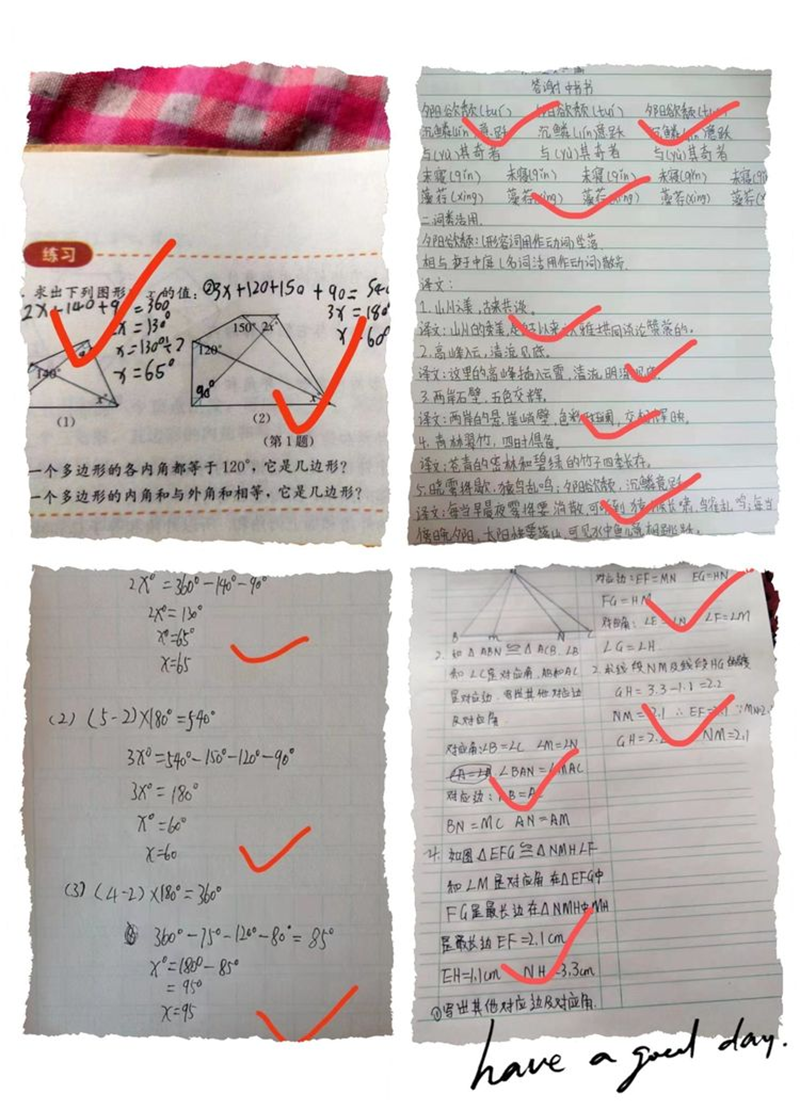 练习
求出下列图形 的值:
②3x+120+150+90=540
3x=180
x=60°
2x+140+90=360
2x=130°
x=130÷2
x=65°
140°
x°
150° 2x°
120°
90°
x°
(1)
(2)
(第1题)
一个多边形的各内角都等于120°,它是几边形?
一个多边形的内角和与外角和相等,它是几边形?
答谢中书书
夕阳欲颓(tuí) 夕阳欲颓(tuí) 夕阳欲颓
沉鳞lín竞跃 沉鳞lín竞跃 沉鳞 竞跃
与(yù)其奇者 与(yù)其奇者 与(yù)其奇者
未寝(qǐn) 未寝(qǐn) 未寝(qǐn) 未寝(qǐn) 未寝
藻荇(xìng) 藻荇(xìng) 藻荇(xìng) 藻荇(xìng) 藻荇
二.词类活用.
夕阳欲颓:(形容词用作动词)坠落.
译文:
1.山川之美,古来共谈。
译文:山川的秀美,
2.高峰入云,清流见底。
译文:这里的高峰插入云霄,清流明澈见底。
3.两岸石壁,五色交辉。
译文:两岸的悬崖峭壁,色彩斑斓,交相辉映。
4.青林翠竹,四时俱备。
译文:苍青的密林和碧绿的竹子四季长存。
5.晓雾将歇,猿鸟乱鸣;夕阳欲颓,沉鳞竞跃。
译文:每当早晨夜雾将要消散,可听到猿猴长啸,鸟雀乱鸣;每当
2x°=360°-140°-90°
2x°=130°
x°=65°
x=65
(2) (5-2)×180°=540°
3x°=540°-150°-120°-90°
3x°=180°
x°=60°
x=60
(3) (4-2)×180°=360°
360°-75°-120°-80°=85°
x°=180°-85°
=95°
x=95
B M N C
2. 如△ABN≌△ACB.∠B
和∠C是对应角.AB和AC
是对应边.写出其他对应边
及对应角.
对应角:∠B=∠C ∠M=∠N
∠BAN=∠MAC
对应边:AB=AC
BN=MC AN=AM
4. 如图△EFG≌△NMH∠F
和∠M是对应角在△EFG中
FG是最长边在△NMH中MH
是最长边EF=2.1cm
EH=1.1cm NH=3.3cm
①写出其他对应边及对应角.
对应边:EF=MN EG=HN
FG=HM
对应角:∠E=∠N ∠F=∠M
∠G=∠H
2.求线段NM及线段HG的
GH=3.3-1.1=2.2
NM=2.1 ∴EF=2.1
GH=2.2 NM=2.1
have a good day.